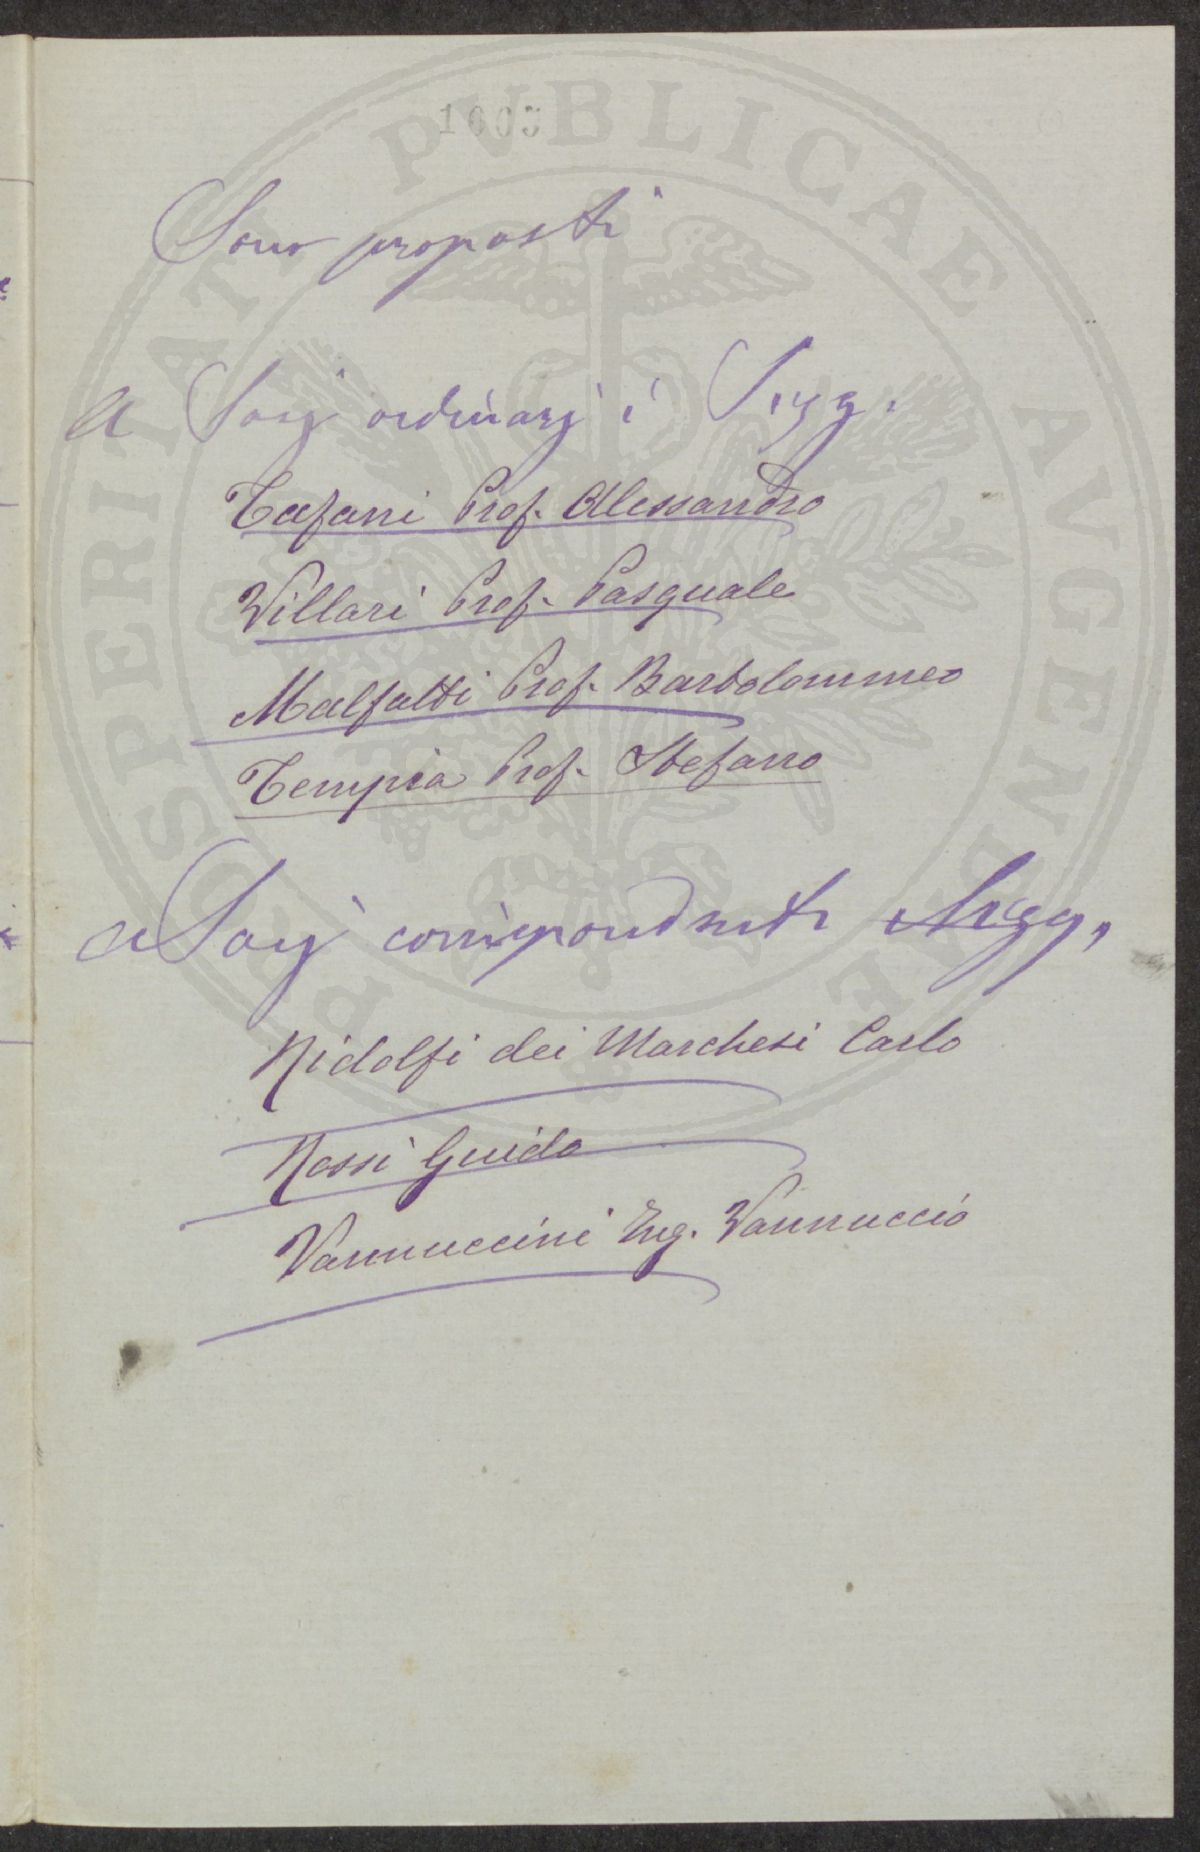 1005
PROSPERITATI PVBLICAE AVGENDAE
Sono proposti
A Socj ordinarj i Sigg.
Tafani Prof. Alessandro
Villari Prof. Pasquale
Malfatti Prof. Bartolommeo
Tempia Prof. Stefano
a Socj corrispondenti Sigg,
Ridolfi dei Marchesi Carlo
Rossi Guido
Vannuccini Ing. Vannuccio